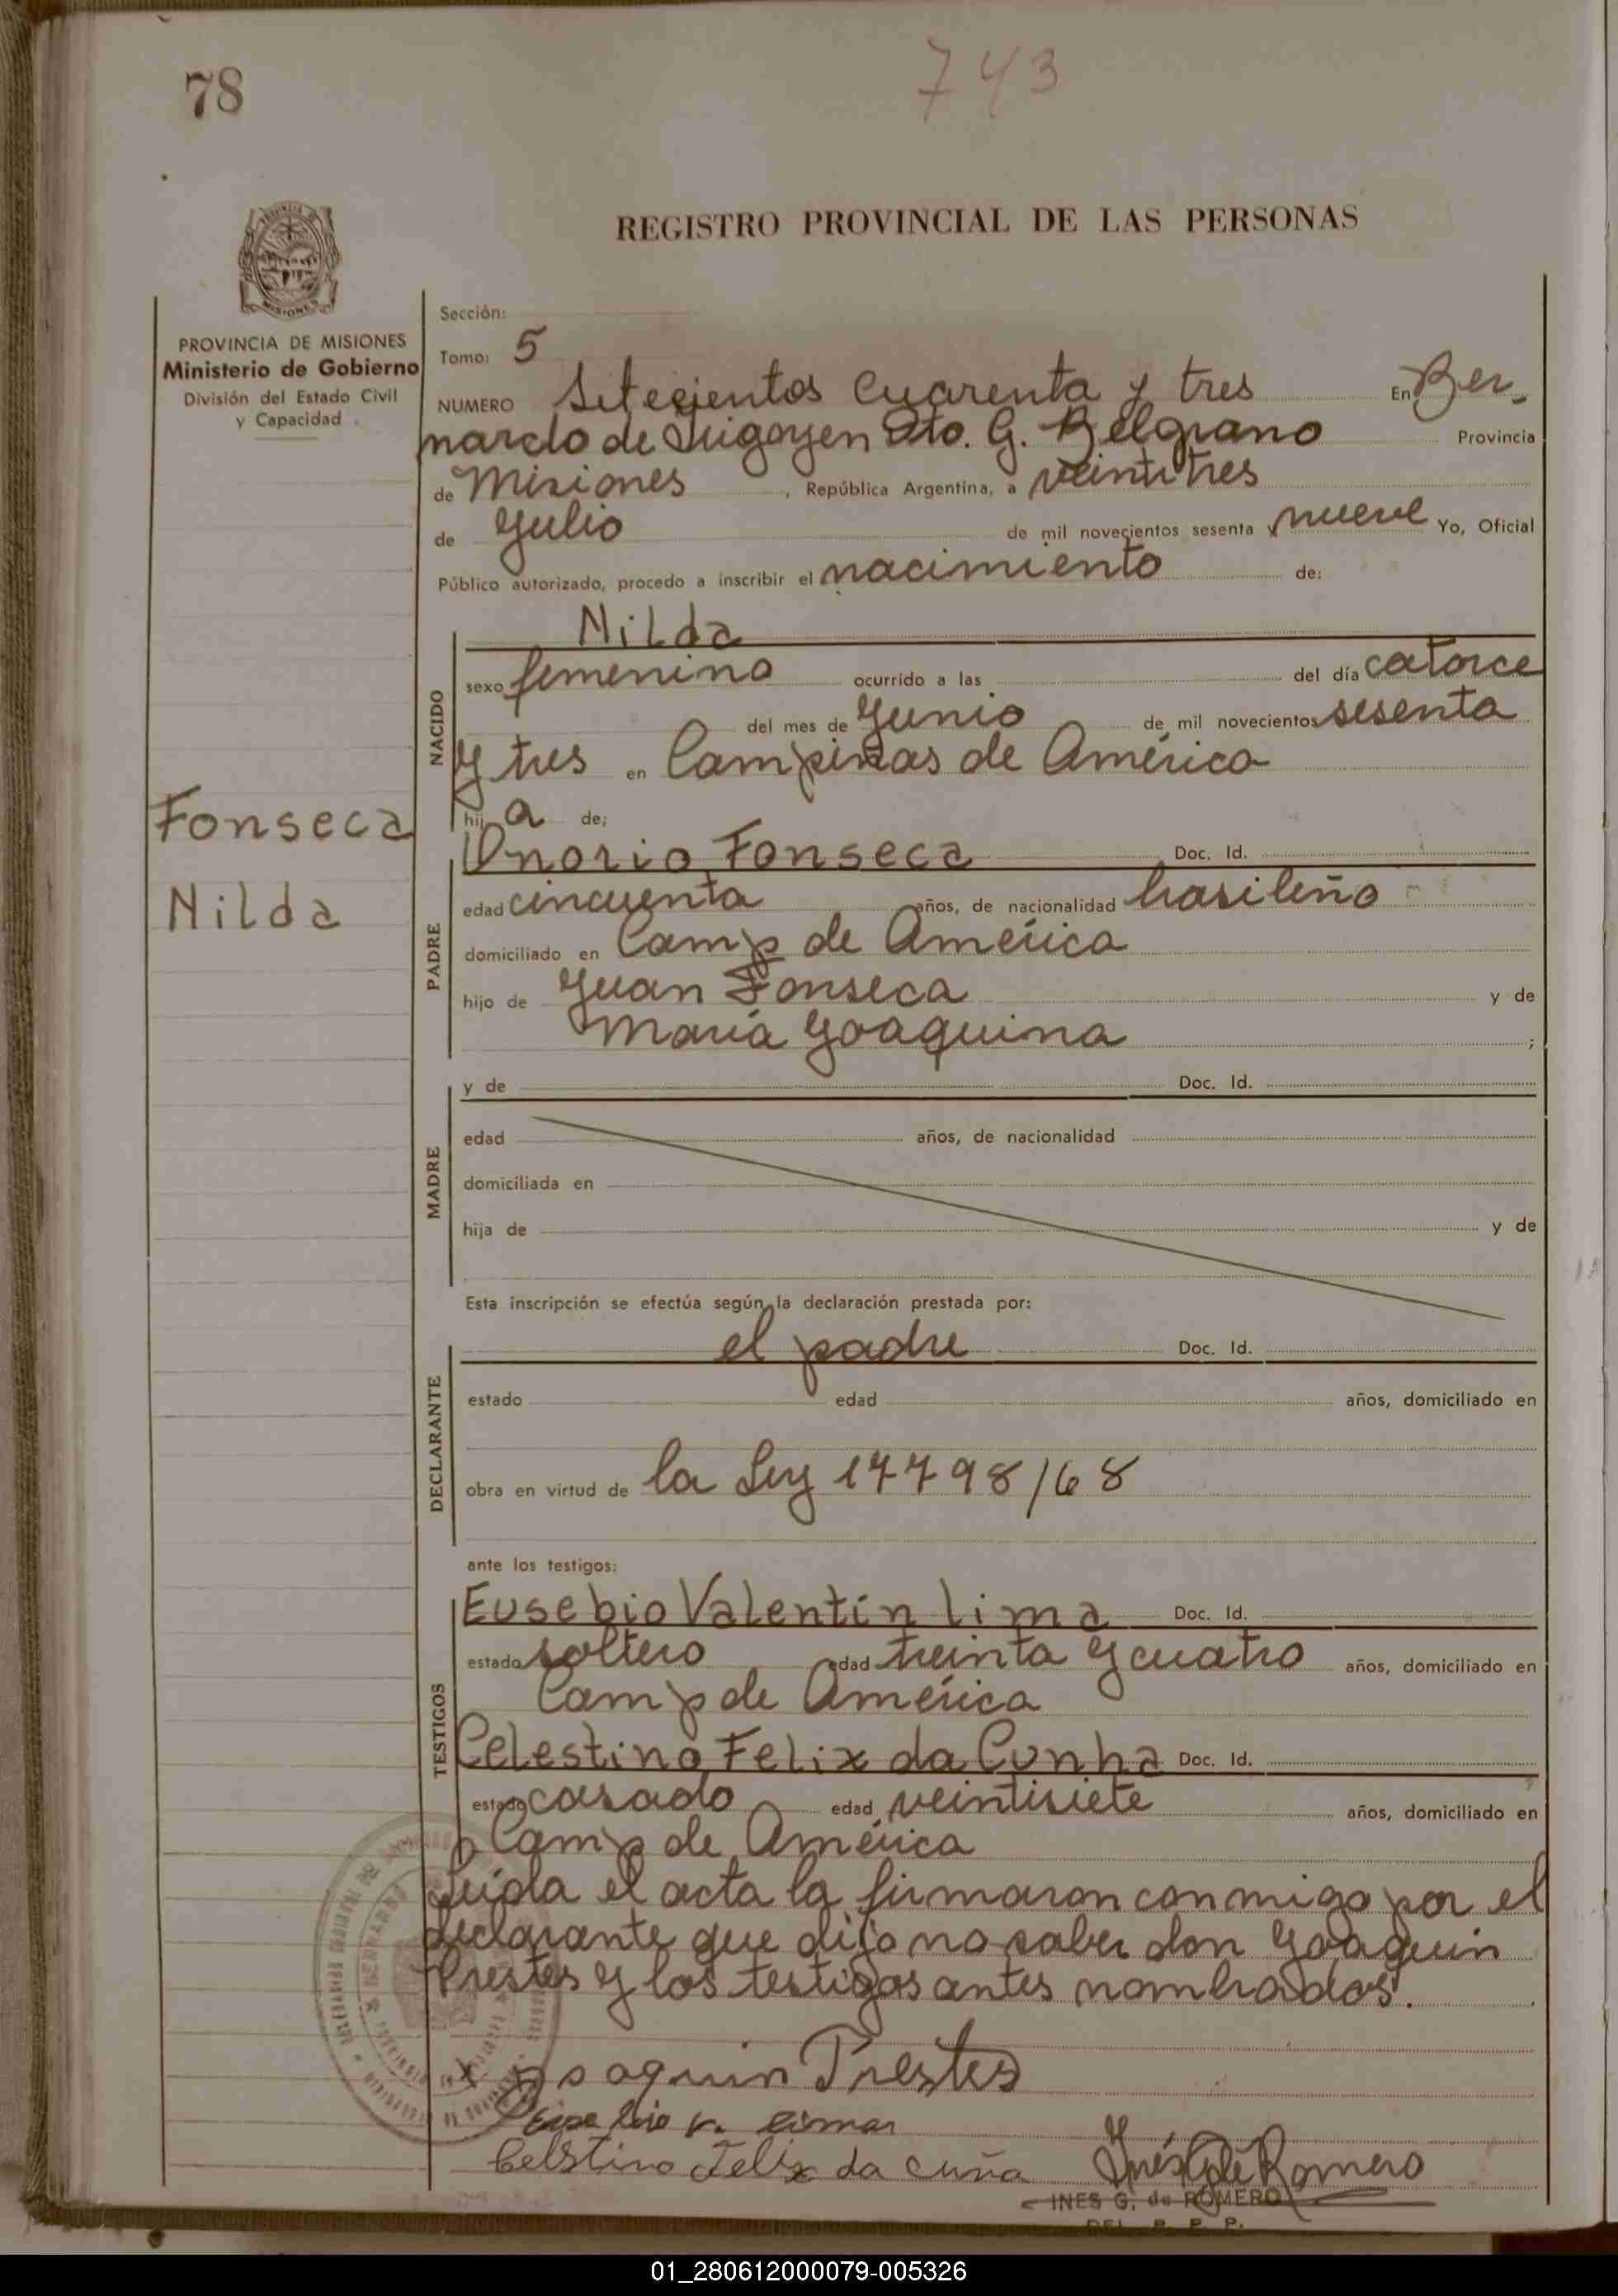 78
743
MISIONES
REGISTRO PROVINCIAL DE LAS PERSONAS
PROVINCIA DE MISIONES
Ministerio de Gobierno
División del Estado Civil
y Capacidad
Fonseca
Nilda
Sección:
Tomo: 5
NUMERO Setecientos Cuarenta y tres En Ber-
nardo de Irigoyen Dto. G. Belgrano Provincia
de Misiones, República Argentina, a veintitres
de Julio de mil novecientos sesenta y nueve Yo, Oficial
Público autorizado, procedo a inscribir el nacimiento de:
NACIDO
Nilda
sexo femenino ocurrido a las del día catorce
del mes de Junio de mil novecientos sesenta
y tres en Campinas de América
hij a de:
PADRE
Onorio Fonseca Doc. Id.
edad cincuenta años, de nacionalidad brasileño
domiciliado en Camp de América
hijo de Juan Fonseca y de
María Joaquina ;
MADRE
y de Doc. Id.
edad años, de nacionalidad
domiciliada en
hija de y de
Esta inscripción se efectúa según la declaración prestada por:
DECLARANTE
el padre Doc. Id.
estado edad años, domiciliado en
obra en virtud de la Ley 17798/68
ante los testigos:
TESTIGOS
Eusebio Valentín lima Doc. Id.
estado soltero edad treinta y cuatro años, domiciliado en
Camp de América
Celestino Felix da Cunha Doc. Id.
estado casado edad veintisiete años, domiciliado en
Camp de América
Leida el acta la firmaron conmigo por el
declarante que dijo no saber don Joaquin
Prestes y los testigos antes nombrados.
x Joaquin Prestes
Eusebio v. lima
Celstino Felix da cuña Inés G de Romero
INES G. de ROMERO
DEL. R. P. P.
01_280612000079-005326